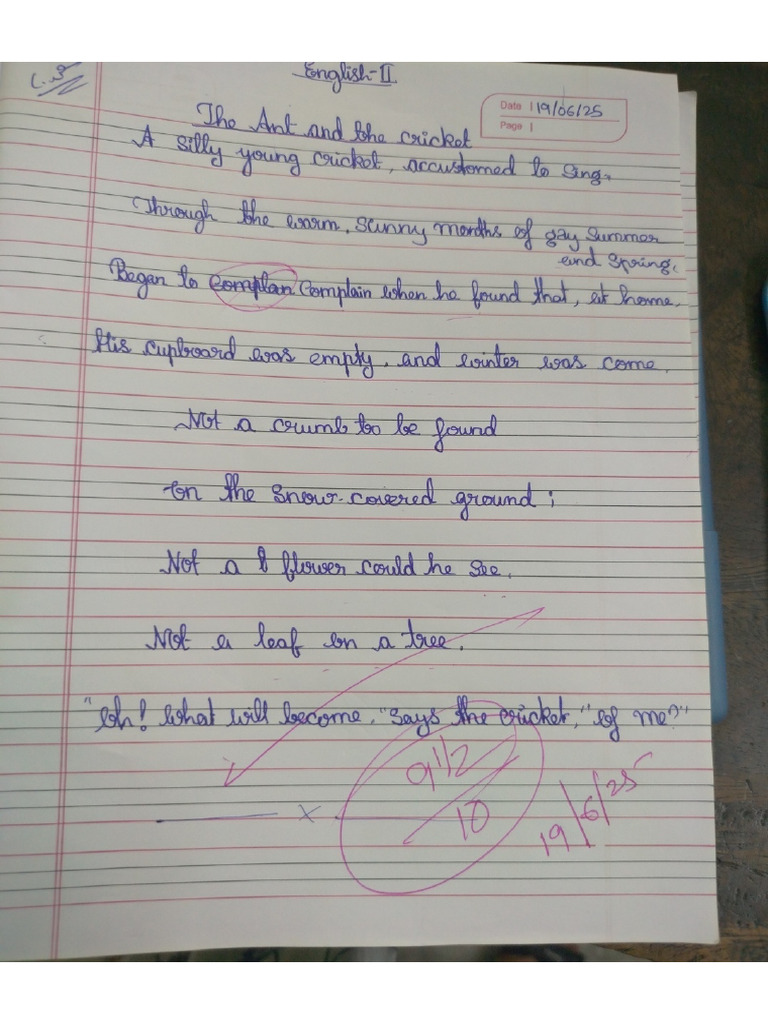 English-II
Date 19/06/25
Page
The Ant and the cricket
A silly young cricket, accustomed to sing,
Through the warm, sunny months of gay summer
and spring,
Began to complan complain when he found that, at home,
His cupboard was empty, and winter was come.
Not a crumb to be found
On the snow-covered ground;
Not a flower could he see,
Not a leaf on a tree.
"Oh! what will become," says the cricket, "of me?"
9 1/2
10
19/6/25